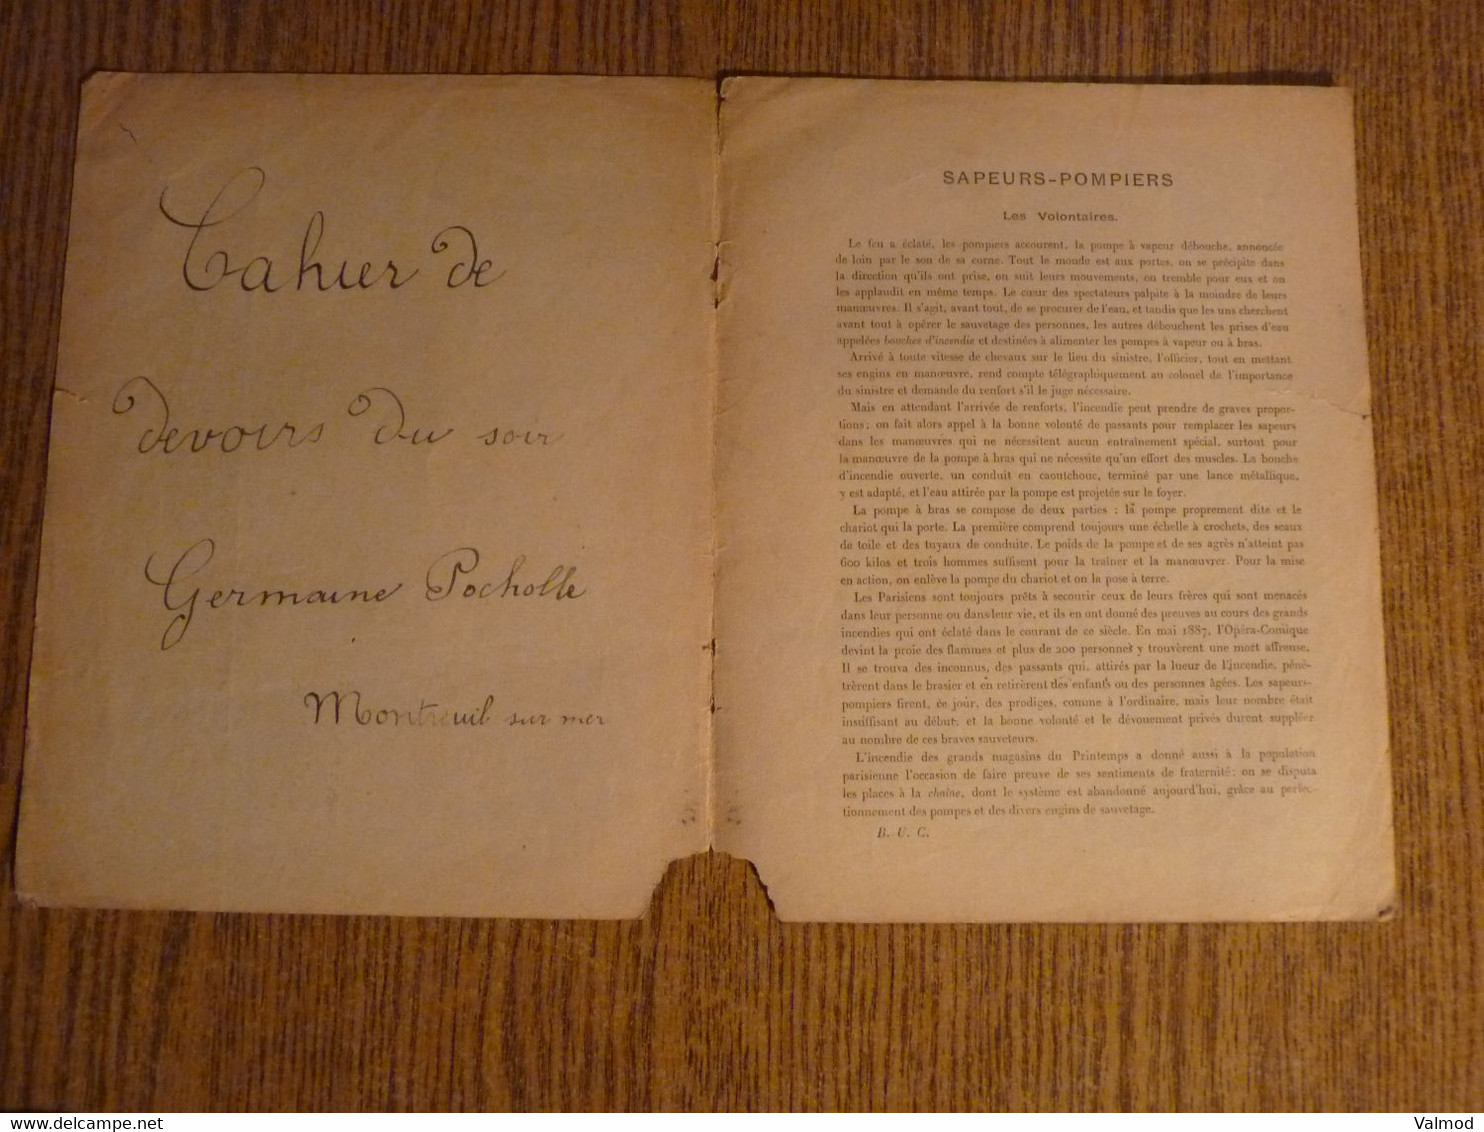 Cahier de
devoirs du soir
Germaine Pocholle
Montreuil sur mer
SAPEURS-POMPIERS
Les Volontaires.
Le feu a éclaté, les pompiers accourent, la pompe à vapeur débouche, annoncée
de loin par le son de sa corne. Tout le monde est aux portes, on se précipite dans
la direction qu'ils ont prise, on suit leurs mouvements, on tremble pour eux et on
les applaudit en même temps. Le cœur des spectateurs palpite à la moindre de leurs
manœuvres. Il s'agit, avant tout, de se procurer de l'eau, et tandis que les uns cherchent
avant tout à opérer le sauvetage des personnes, les autres débouchent les prises d'eau
appelées bouches d'incendie et destinées à alimenter les pompes à vapeur ou à bras.
Arrivé à toute vitesse de chevaux sur le lieu du sinistre, l'officier, tout en mettant
ses engins en manœuvre, rend compte télégraphiquement au colonel de l'importance
du sinistre et demande du renfort s'il le juge nécessaire.
Mais en attendant l'arrivée de renforts, l'incendie peut prendre de graves propor-
tions; on fait alors appel à la bonne volonté de passants pour remplacer les sapeurs
dans les manœuvres qui ne nécessitent aucun entraînement spécial, surtout pour
la manœuvre de la pompe à bras qui ne nécessite qu'un effort des muscles. La bouche
d'incendie ouverte, un conduit en caoutchouc, terminé par une lance métallique,
y est adapté, et l'eau attirée par la pompe est projetée sur le foyer.
La pompe à bras se compose de deux parties : la pompe proprement dite et le
chariot qui la porte. La première comprend toujours une échelle à crochets, des seaux
de toile et des tuyaux de conduite. Le poids de la pompe et de ses agrès n'atteint pas
600 kilos et trois hommes suffisent pour la traîner et la manœuvrer. Pour la mise
en action, on enlève la pompe du chariot et on la pose à terre.
Les Parisiens sont toujours prêts à secourir ceux de leurs frères qui sont menacés
dans leur personne ou dans leur vie, et ils en ont donné des preuves au cours des grands
incendies qui ont éclaté dans le courant de ce siècle. En mai 1887, l'Opéra-Comique
devint la proie des flammes et plus de 200 personnes y trouvèrent une mort affreuse.
Il se trouva des inconnus, des passants qui, attirés par la lueur de l'incendie, péné-
trèrent dans le brasier et en retirèrent des enfants ou des personnes âgées. Les sapeurs-
pompiers firent, ce jour, des prodiges, comme à l'ordinaire, mais leur nombre était
insuffisant au début, et la bonne volonté et le dévouement privés durent suppléer
au nombre de ces braves sauveteurs.
L'incendie des grands magasins du Printemps a donné aussi à la population
parisienne l'occasion de faire preuve de ses sentiments de fraternité; on se disputa
les places à la chaîne, dont le système est abandonné aujourd'hui, grâce au perfec-
tionnement des pompes et des divers engins de sauvetage.
B. U. C.
delcampe.net
Valmod